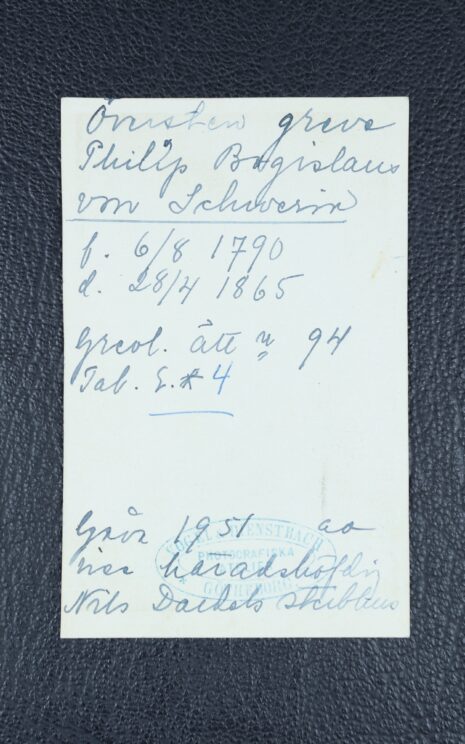 Översten greve
Philip Bogislaus
von Schwerin
f. 6/8 1790
d. 28/4 1865
Grevl. ätt n 94
Tab. 4
Gåva 1951 av
vice häradshöfding
Nils Dardels sterbhus
PHOTOGRAFISKA
GÖTHEBORG